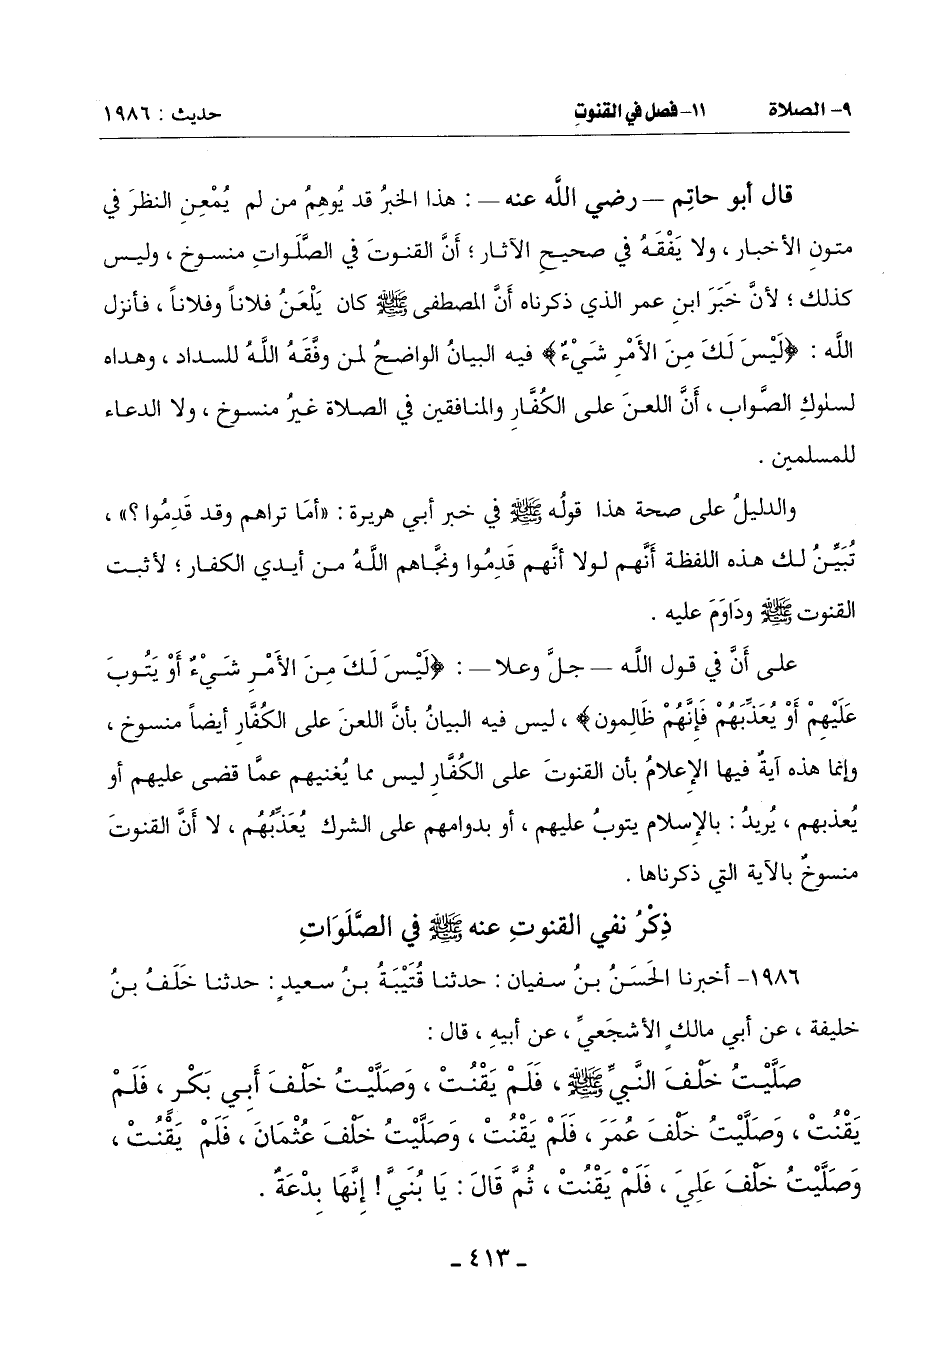 ٩- الصلاة ١١- فصل في القنوت حديث : ١٩٨٦
قال أبو حاتِم — رضي اللَّه عنه — : هذا الخبرُ قد يُوهِمُ من لم يُمْعِنِ النظرَ في
متون الأخبار ، ولا يَفْقَهُ في صحيحِ الآثار ؛ أنَّ القنوتَ في الصَّلواتِ منسوخ ، وليس
كذلك ؛ لأنَّ خَبَرَ ابنِ عمر الذي ذكرناه أنَّ المصطفى ﷺ كان يَلْعَنُ فلاناً وفلاناً ، فأنزل
اللَّه : ﴿لَيْسَ لَكَ مِنَ الأَمْرِ شَيْءٌ﴾ فيه البيانُ الواضحُ لمن وفَّقَهُ اللَّهُ للسداد ، وهداه
لسلوكِ الصَّواب ، أنَّ اللعنَ على الكُفَّارِ والمنافقين في الصلاة غيرُ منسوخ ، ولا الدعاء
للمسلمين .
والدليلُ على صحة هذا قولُه ﷺ في خبر أبي هريرة : «أمَا تراهم وقد قَدِمُوا ؟» ،
تُبَيِّنُ لك هذه اللفظة أنَّهم لولا أنَّهم قَدِمُوا ونجَّاهم اللَّهُ من أيدي الكفار ؛ لأثبت
القنوت ﷺ ودَاوَمَ عليه .
على أنَّ في قول اللَّه — جلَّ وعلا — : ﴿لَيْسَ لَكَ مِنَ الأَمْرِ شَيْءٌ أَوْ يَتُوبَ
عَلَيْهِمْ أَوْ يُعَذِّبَهُمْ فَإِنَّهُمْ ظَالِمون﴾ ، ليس فيه البيانُ بأنَّ اللعنَ على الكُفَّارِ أيضاً منسوخ ،
وإنما هذه آيةٌ فيها الإعلامُ بأن القنوتَ على الكُفَّارِ ليس مما يُغنيهم عمَّا قضى عليهم أو
يُعذبهم ، يُريدُ : بالإسلام يتوبُ عليهم ، أو بدوامهم على الشرك يُعَذِّبُهُم ، لا أنَّ القنوتَ
منسوخٌ بالآية التي ذكرناها .
ذِكْرُ نفي القنوتِ عنه ﷺ في الصَّلَوَاتِ
١٩٨٦- أخبرنا الحَسَنُ بنُ سفيان : حدثنا قُتَيْبَةُ بنُ سعيدٍ : حدثنا خَلَفُ بنُ
خليفة ، عن أبي مالكٍ الأشجَعيِّ ، عن أبيهِ ، قال :
صَلَّيْتُ خَلْفَ النَّبيِّ ﷺ ، فَلَمْ يَقْنُتْ ، وَصَلَّيْتُ خَلْفَ أَبِي بَكْرٍ ، فَلَمْ
يَقْنُتْ ، وَصَلَّيْتُ خَلْفَ عُمَرَ ، فَلَمْ يَقْنُتْ ، وَصَلَّيْتُ خَلْفَ عُثْمَانَ ، فَلَمْ يَقْنُتْ ،
وَصَلَّيْتُ خَلْفَ عَلِيَ ، فَلَمْ يَقْنُتْ ، ثُمَّ قَالَ : يَا بُنَيَّ ! إِنَّهَا بِدْعَةٌ .
- ٤١٣ -